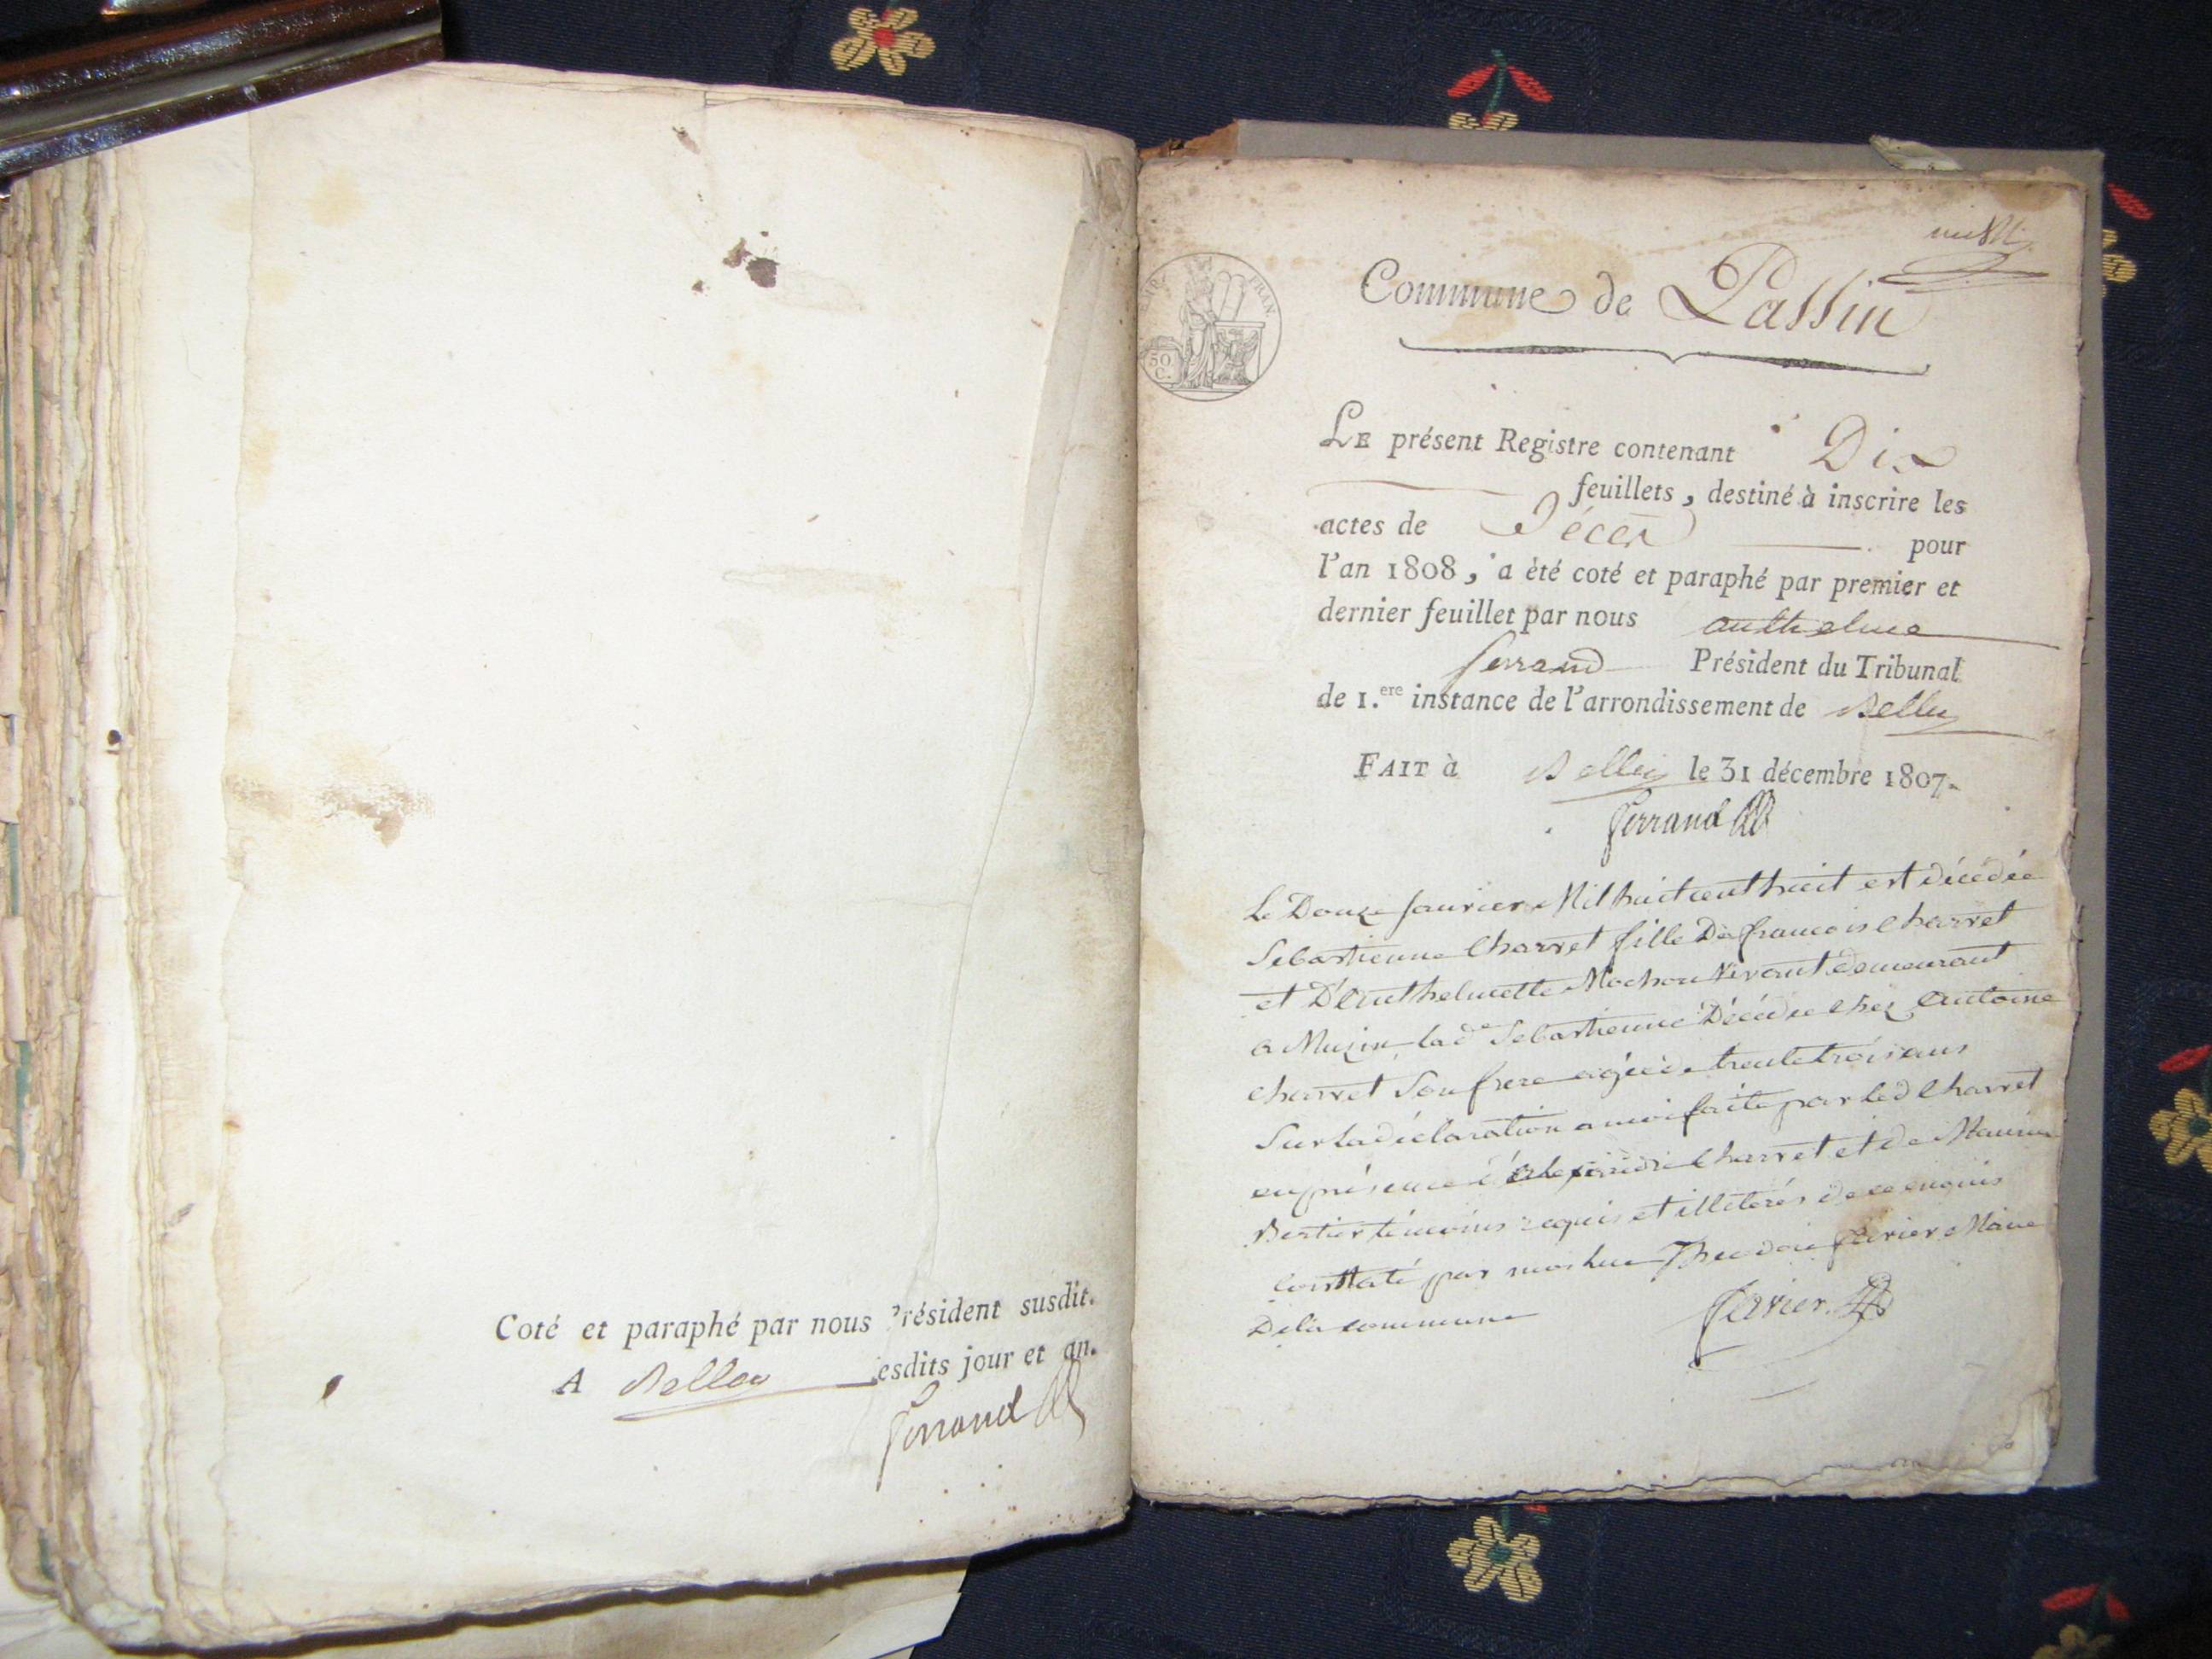 Coté et paraphé par nous Président susdit.
A Belley lesdits jour et an.
Ferrand
FRAN.
50
C.
Commune de Passin
LE présent Registre contenant Dix
feuillets, destiné à inscrire les
actes de Décès pour
l'an 1808, a été coté et paraphé par premier et
dernier feuillet par nous anthelme
ferrand Président du Tribunal
de 1.ere instance de l'arrondissement de Belley
FAIT à Belley le 31 décembre 1807.
Ferrand
Le Douze Janvier Mil huit cent huit est décédée
Sebastienne Charvet fille De francois Charvet
et D'Anthelmette Mochon Vivant demeurant
a Muzin lad.e Sebastienne Décédée chez Antoine
Charvet Son frere agée de trente trois ans
Sur la déclaration a moi faite par led Charvet
en présence d' Charvet et de
Bertier témoins requis et illiterés de ce enquis
Constaté par moi Luc ferier Maire
De la commune
ferier